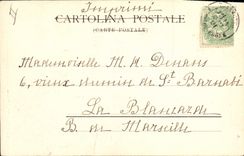 Imprimé
CARTOLINA POSTALE
(CARTE POSTALE)
Mademoiselle M. A. Dinans
6, vieux chemin de St Barnabé
La Blancarde
B. de Marseille